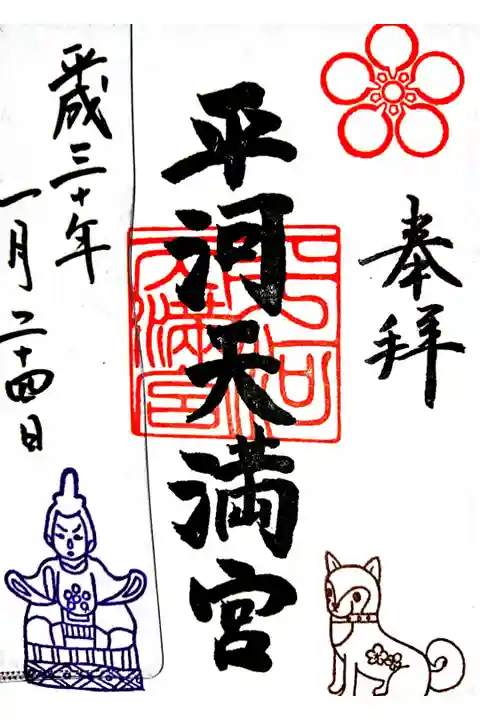 奉拝
平河天満宮
平河天満宮
平成三十年
一月二十四日